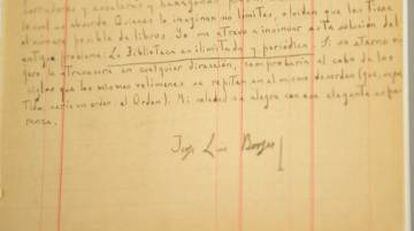 corredores y escaleras y hexágonos
lo cual es absurdo. Quienes lo imaginan sin límites, olvidan que los tiene
el número posible de libros. Yo me atrevo a insinuar esta solución del
antiguo problema: La Biblioteca es ilimitada y periódica. Si un eterno via-
jero la atravesara en cualquier dirección, comprobaría al cabo de los
siglos que los mismos volúmenes se repiten en el mismo desorden (que, repe-
tido, sería un orden: el Orden). Mi soledad se alegra con esa elegante espe-
ranza.
Jorge Luis Borges